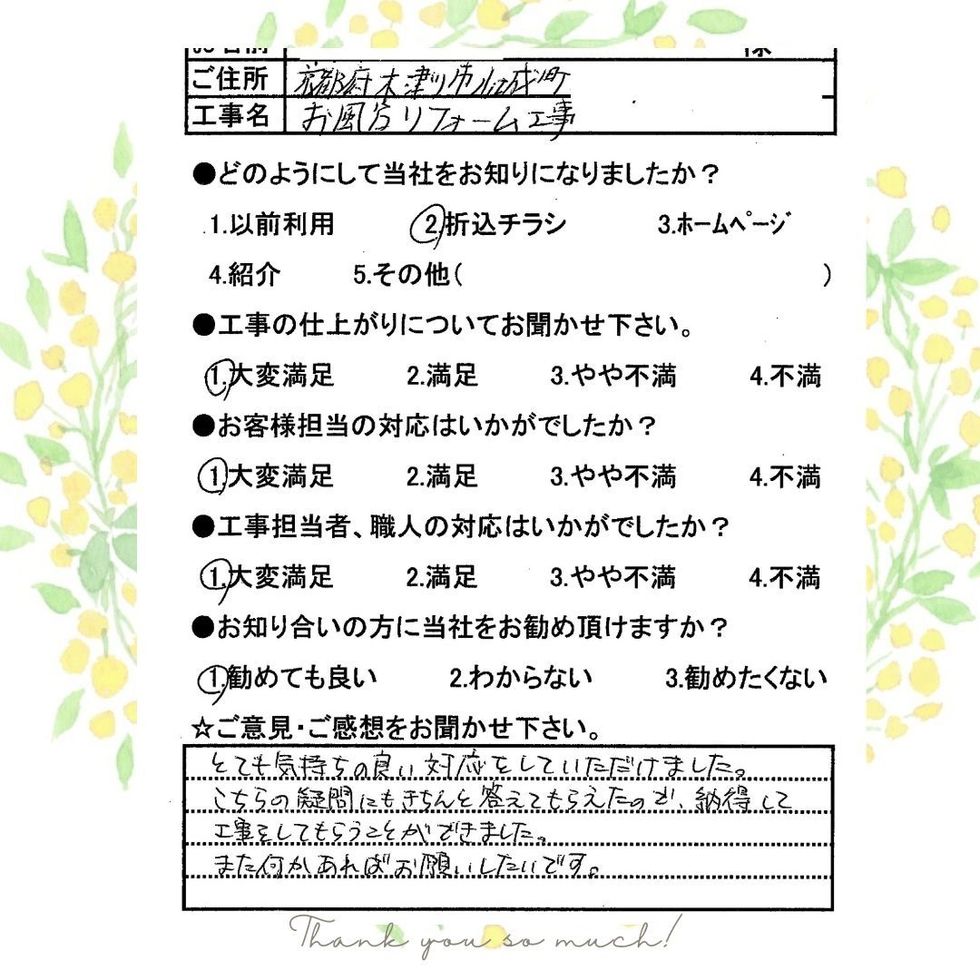 お名前 様
ご住所 京都府木津川市城町
工事名 お風呂リフォーム工事
●どのようにして当社をお知りになりましたか？
1.以前利用 2.折込チラシ 3.ホームページ
4.紹介 5.その他( )
●工事の仕上がりについてお聞かせ下さい。
1.大変満足 2.満足 3.やや不満 4.不満
●お客様担当の対応はいかがでしたか？
1.大変満足 2.満足 3.やや不満 4.不満
●工事担当者、職人の対応はいかがでしたか？
1.大変満足 2.満足 3.やや不満 4.不満
●お知り合いの方に当社をお勧め頂けますか？
1.勧めても良い 2.わからない 3.勧めたくない
☆ご意見・ご感想をお聞かせ下さい。
とても気持ちの良い対応をしていただけました。
こちらの疑問にもきちんと答えてもらえたので、納得して
工事をしてもらうことができました。
また何かあればお願いしたいです。
Thank you so much!